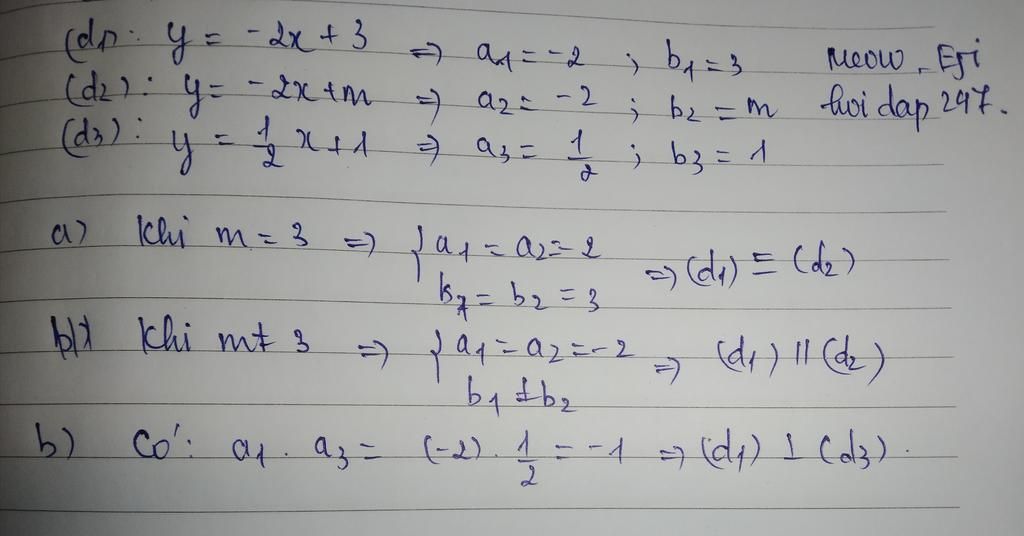 (d1): y = -2x + 3 => a1 = -2 ; b1 = 3 Meow_Eji
(d2): y = -2x + m => a2 = -2 ; b2 = m hoidap 247.
(d3): y = 1/2 x + 1 => a3 = 1/2 ; b3 = 1
a) Khi m = 3 => { a1 = a2 = -2
b1 = b2 = 3 => (d1) ≡ (d2)
Khi m ≠ 3 => { a1 = a2 = -2
b1 ≠ b2 => (d1) // (d2)
b) Có: a1 . a3 = (-2) . 1/2 = -1 => (d1) ⊥ (d3).